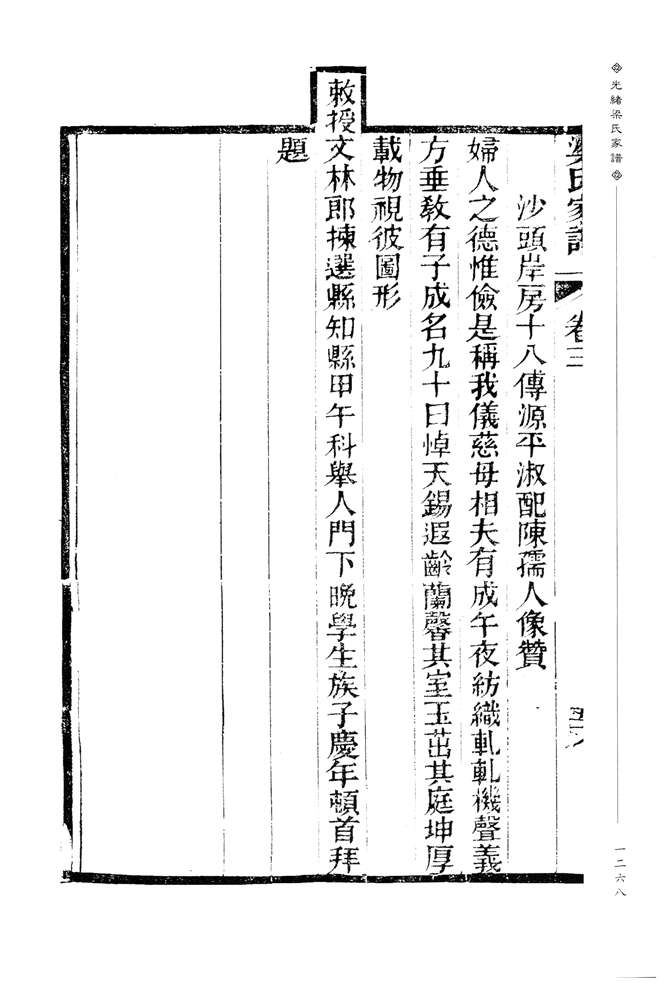 光緒梁氏家譜
梁氏家譜 卷三
沙頭岸房十八傳源平淑配陳孺人像贊
婦人之德惟儉是稱我儀慈母相夫有成午夜紡織軋軋機聲義
方垂敎有子成名九十曰悼天錫遐齡蘭馨其室玉茁其庭坤厚
載物視彼圖形
敕授文林郎揀選縣知縣甲午科舉人門下晩學生族子慶年頓首拜
題
一二六八